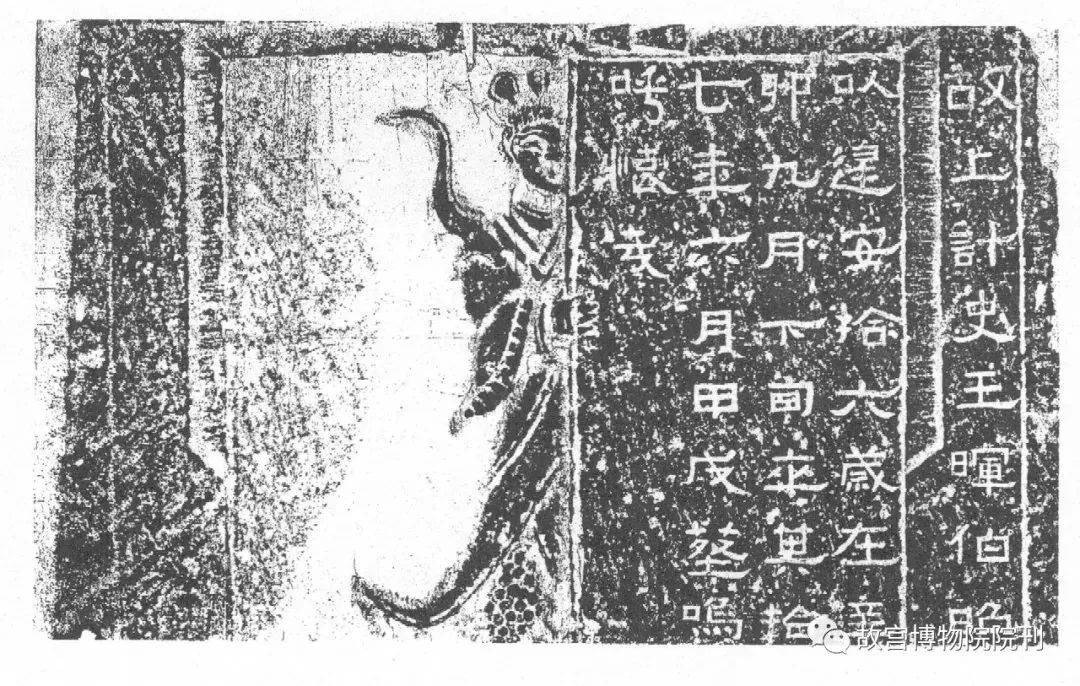 故上計史王暉伯昭
以建安拾六歲在辛
卯九月下旬卒其拾
七年六月甲戌塟嗚
呼懷哉
故宫博物院院刊